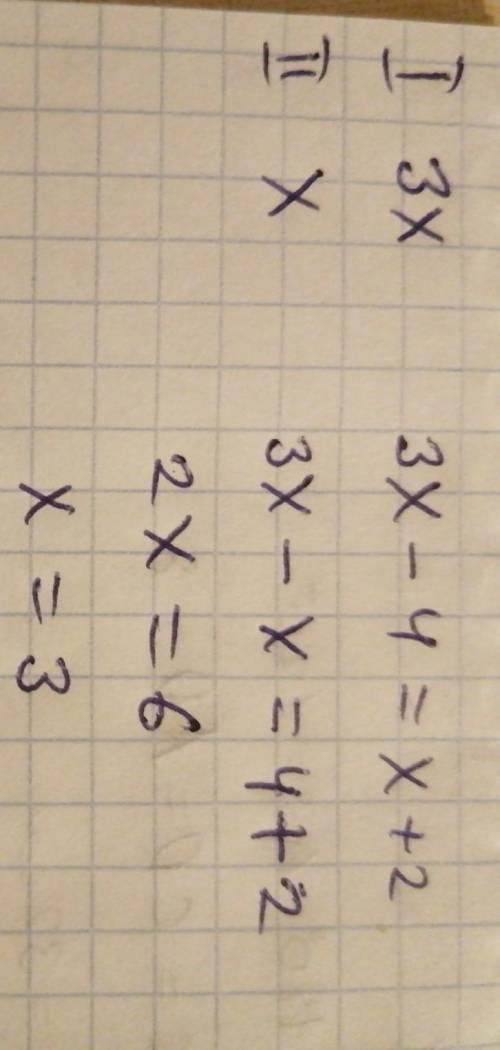 I) 3x 3x - 4 = x + 2
II) x 3x - x = 4 + 2
2x = 6
x = 3